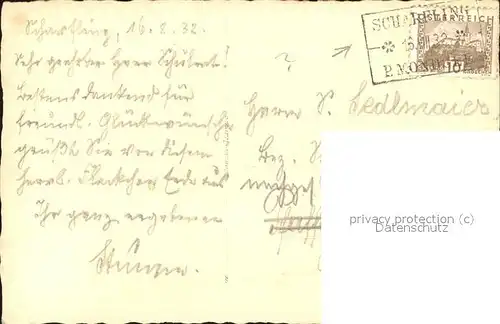 Scharfling, 16.8.32.
Sehr geehrter Herr Schulrat!
Bestens dankend für
freundl. Glückwünsche
grüßt Sie von diesem
herrl. Fleckchen Erde aus
Ihr ganz ergebener
?
Herrn S. Sedlmaier
Bez.
SCHARFLING
P. MOND
ÖSTERREICH
10
privacy protection (c)
Datenschutz